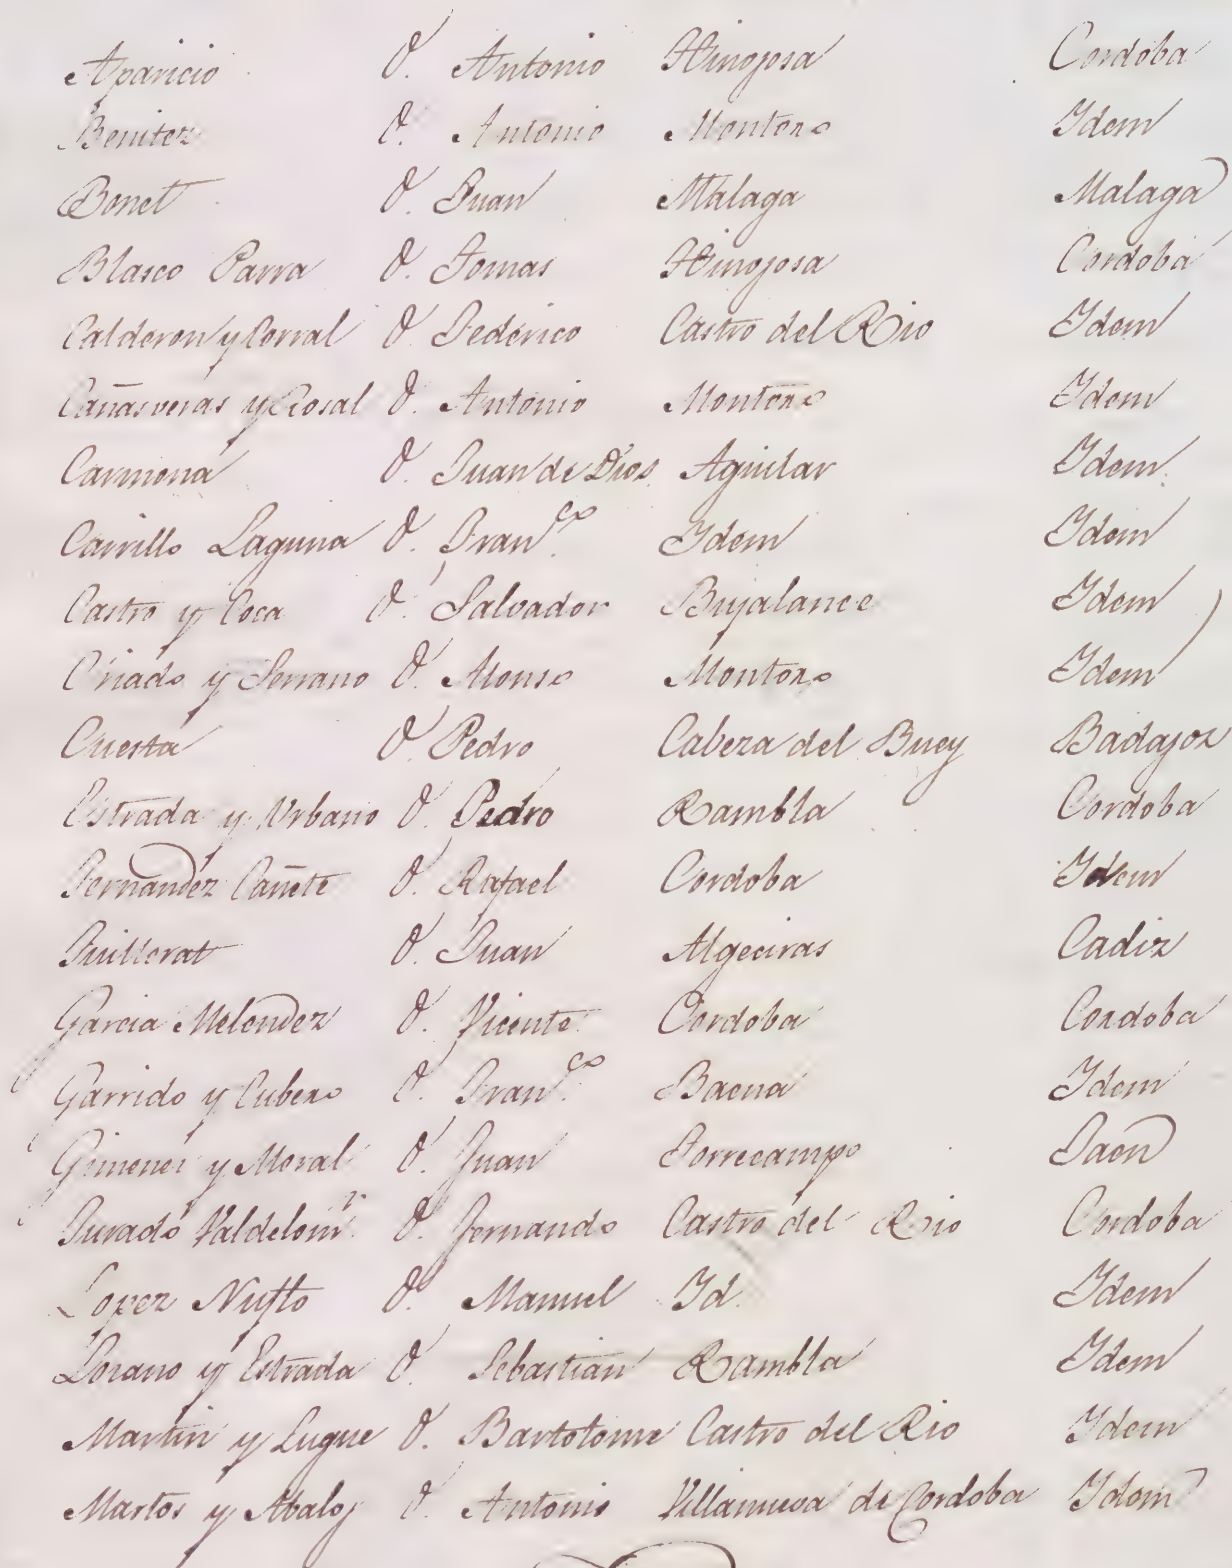 Aparicio D. Antonio Hinojosa Cordoba
Benitez D. Antonio Montoro Idem
Bonet D. Juan Malaga Malaga
Blasco Parra D. Tomas Hinojosa Cordoba
Calderon y Corral D. Federico Castro del Rio Idem
Cañasveras y Rosal D. Antonio Montoro Idem
Carmona D. Juan de Dios Aguilar Idem
Carrillo Laguna D. Fran.co Idem Idem
Castro y Coca D. Salvador Bujalance Idem
Criado y Serrano D. Alonso Montoro Idem
Cuesta D. Pedro Cabeza del Buey Badajoz
Estrada y Urbano D. Pedro Rambla Cordoba
Fernandez Cañete D. Rafael Cordoba Idem
Fuillerat D. Juan Algeciras Cadiz
Garcia Melendez D. Vicente Cordoba Cordoba
Garrido y Cubero D. Fran.co Baena Idem
Gimenez y Moral D. Juan Torrecampo Jaen
Jurado Valdelom.r D. Fernando Castro del Rio Cordoba
Lopez Nufto D. Manuel Id. Idem
Lozano y Estrada D. Sebastian Rambla Idem
Martin y Luque D. Bartolome Castro del Rio Idem
Martos y Abaloz D. Antonio Villanueva de Cordoba Idem